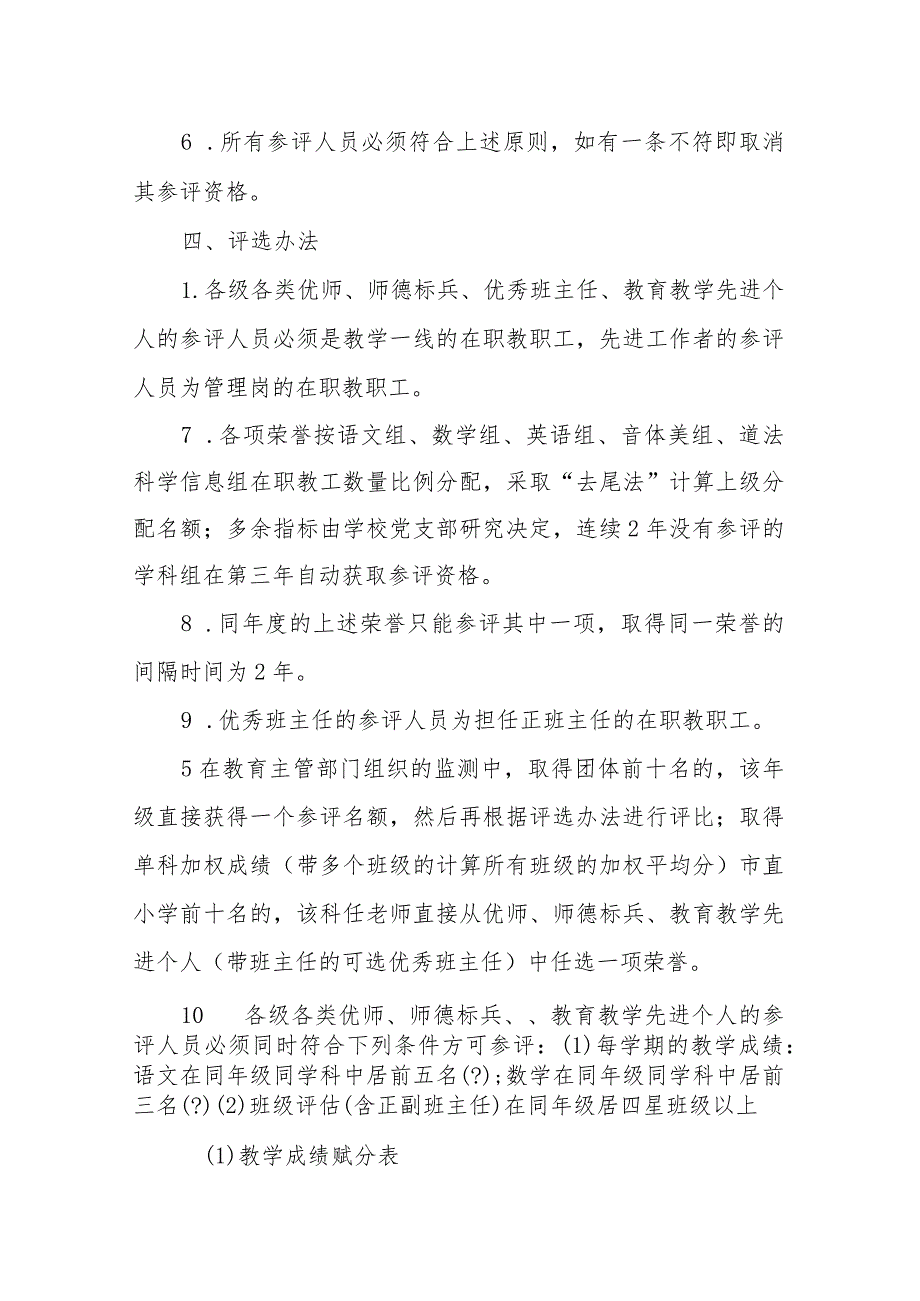 6 .所有参评人员必须符合上述原则，如有一条不符即取消
其参评资格。
四、评选办法
1.各级各类优师、师德标兵、优秀班主任、教育教学先进个
人的参评人员必须是教学一线的在职教职工，先进工作者的参评
人员为管理岗的在职教职工。
7 .各项荣誉按语文组、数学组、英语组、音体美组、道法
科学信息组在职教工数量比例分配，采取“去尾法”计算上级分
配名额；多余指标由学校党支部研究决定，连续2年没有参评的
学科组在第三年自动获取参评资格。
8 .同年度的上述荣誉只能参评其中一项，取得同一荣誉的
间隔时间为2年。
9 .优秀班主任的参评人员为担任正班主任的在职教职工。
5在教育主管部门组织的监测中，取得团体前十名的，该年
级直接获得一个参评名额，然后再根据评选办法进行评比；取得
单科加权成绩（带多个班级的计算所有班级的加权平均分）市直
小学前十名的，该科任老师直接从优师、师德标兵、教育教学先
进个人（带班主任的可选优秀班主任）中任选一项荣誉。
10 各级各类优师、师德标兵、、教育教学先进个人的参
评人员必须同时符合下列条件方可参评：(1)每学期的教学成绩：
语文在同年级同学科中居前五名(?);数学在同年级同学科中居前
三名(?)(2)班级评估(含正副班主任)在同年级居四星班级以上
(1)教学成绩赋分表